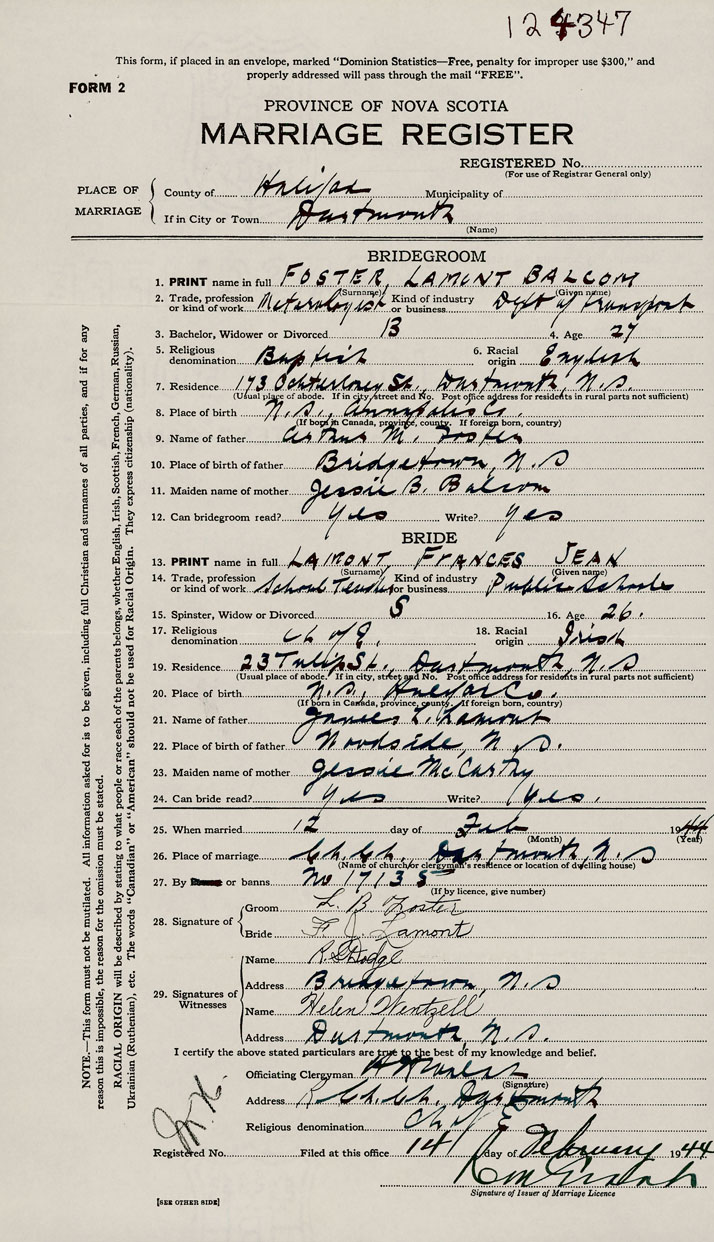 124347
This form, if placed in an envelope, marked "Dominion Statistics—Free, penalty for improper use $300," and
properly addressed will pass through the mail "FREE".
FORM 2
PROVINCE OF NOVA SCOTIA
MARRIAGE REGISTER
REGISTERED No.
(For use of Registrar General only)
PLACE OF MARRIAGE
County of Halifax Municipality of
If in City or Town Dartmouth
(Name)
BRIDEGROOM
1. PRINT name in full FOSTER, LAMONT BALCOM
(Surname) (Given name)
2. Trade, profession or kind of work Meterologist Kind of industry or business Dept of Transport
3. Bachelor, Widower or Divorced B 4. Age 27
5. Religious denomination Baptist 6. Racial origin English
7. Residence 173 Ochterloney St., Dartmouth, N.S.
(Usual place of abode. If in city, street and No. Post office address for residents in rural parts not sufficient)
8. Place of birth N.S., Annapolis Co.
(If born in Canada, province, county. If foreign born, country)
9. Name of father Arthur M. Foster
10. Place of birth of father Bridgetown, N.S
11. Maiden name of mother Jessie B. Balcom
12. Can bridegroom read? Yes Write? Yes
BRIDE
13. PRINT name in full LAMONT, FRANCES JEAN
(Surname) (Given name)
14. Trade, profession or kind of work School Teacher Kind of industry or business Public Schools
15. Spinster, Widow or Divorced S 16. Age 26.
17. Religious denomination Ch of E. 18. Racial origin Irish
19. Residence 23 Tulip St., Dartmouth, N.S
(Usual place of abode. If in city, street and No. Post office address for residents in rural parts not sufficient)
20. Place of birth N.S., Halifax Co.
(If born in Canada, province, county. If foreign born, country)
21. Name of father James L. Lamont
22. Place of birth of father Woodside, N.S.
23. Maiden name of mother Jessie McCarthy
24. Can bride read? Yes Write? Yes.
25. When married 12 day of Feb 1944
(Month) (Year)
26. Place of marriage Ch. Ch., Dartmouth, N.S
(Name of church or clergyman's residence or location of dwelling house)
27. By or banns No 17135
(If by licence, give number)
28. Signature of
Groom L. B. Foster
Bride F. J. Lamont
29. Signatures of Witnesses
Name R. S. Dodge
Address Bridgetown, N.S
Name Helen Wentzell
Address Dartmouth, N.S.
I certify the above stated particulars are true to the best of my knowledge and belief.
Officiating Clergyman
(Signature)
Address Ch. Ch. Dartmouth
Religious denomination Ch of E
Registered No. Filed at this office 14 day of February 1944
Signature of Issuer of Marriage Licence
[SEE OTHER SIDE]
NOTE.—This form must not be mutilated. All information asked for is to be given, including full Christian and surnames of all parties, and if for any
reason this is impossible, the reason for the omission must be stated.
RACIAL ORIGIN will be described by stating to what people or race each of the parents belongs, whether English, Irish, Scottish, French, German, Russian,
Ukrainian (Ruthenian), etc. The words "Canadian" or "American" should not be used for Racial Origin. They express citizenship (nationality).